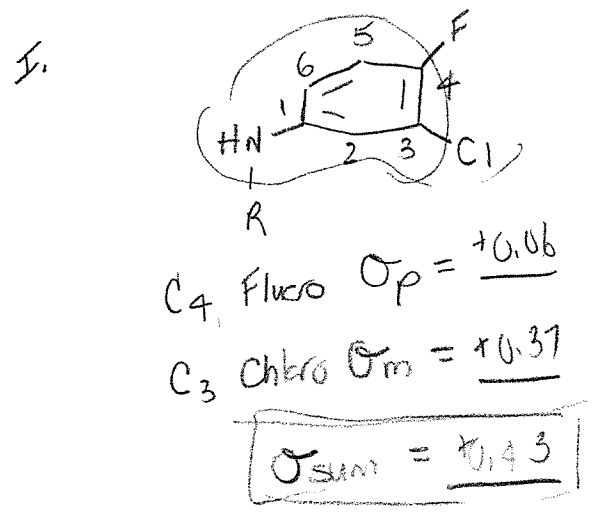 I.
F
5
6
4
1
HN
2
3
Cl
R
C4 Fluoro σp = +0.06
C3 Chloro σm = +0.37
σsum = +0.43